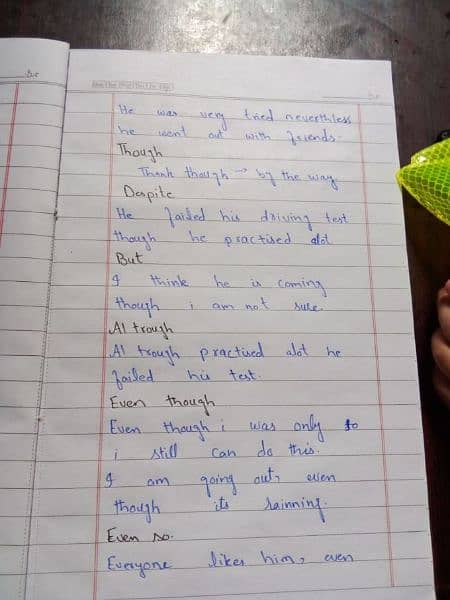 He was very tried nevertheless
he went out with friends.
Though
Thank though → by the way.
Despite
He failed his driving test
though he practised alot
But
I think he is coming
though i am not sure.
Al trough
Al trough practised alot he
failed his test.
Even though
Even though i was only to
i still can do this.
I am going out, even
though its rainning.
Even so.
Everyone likes him, even